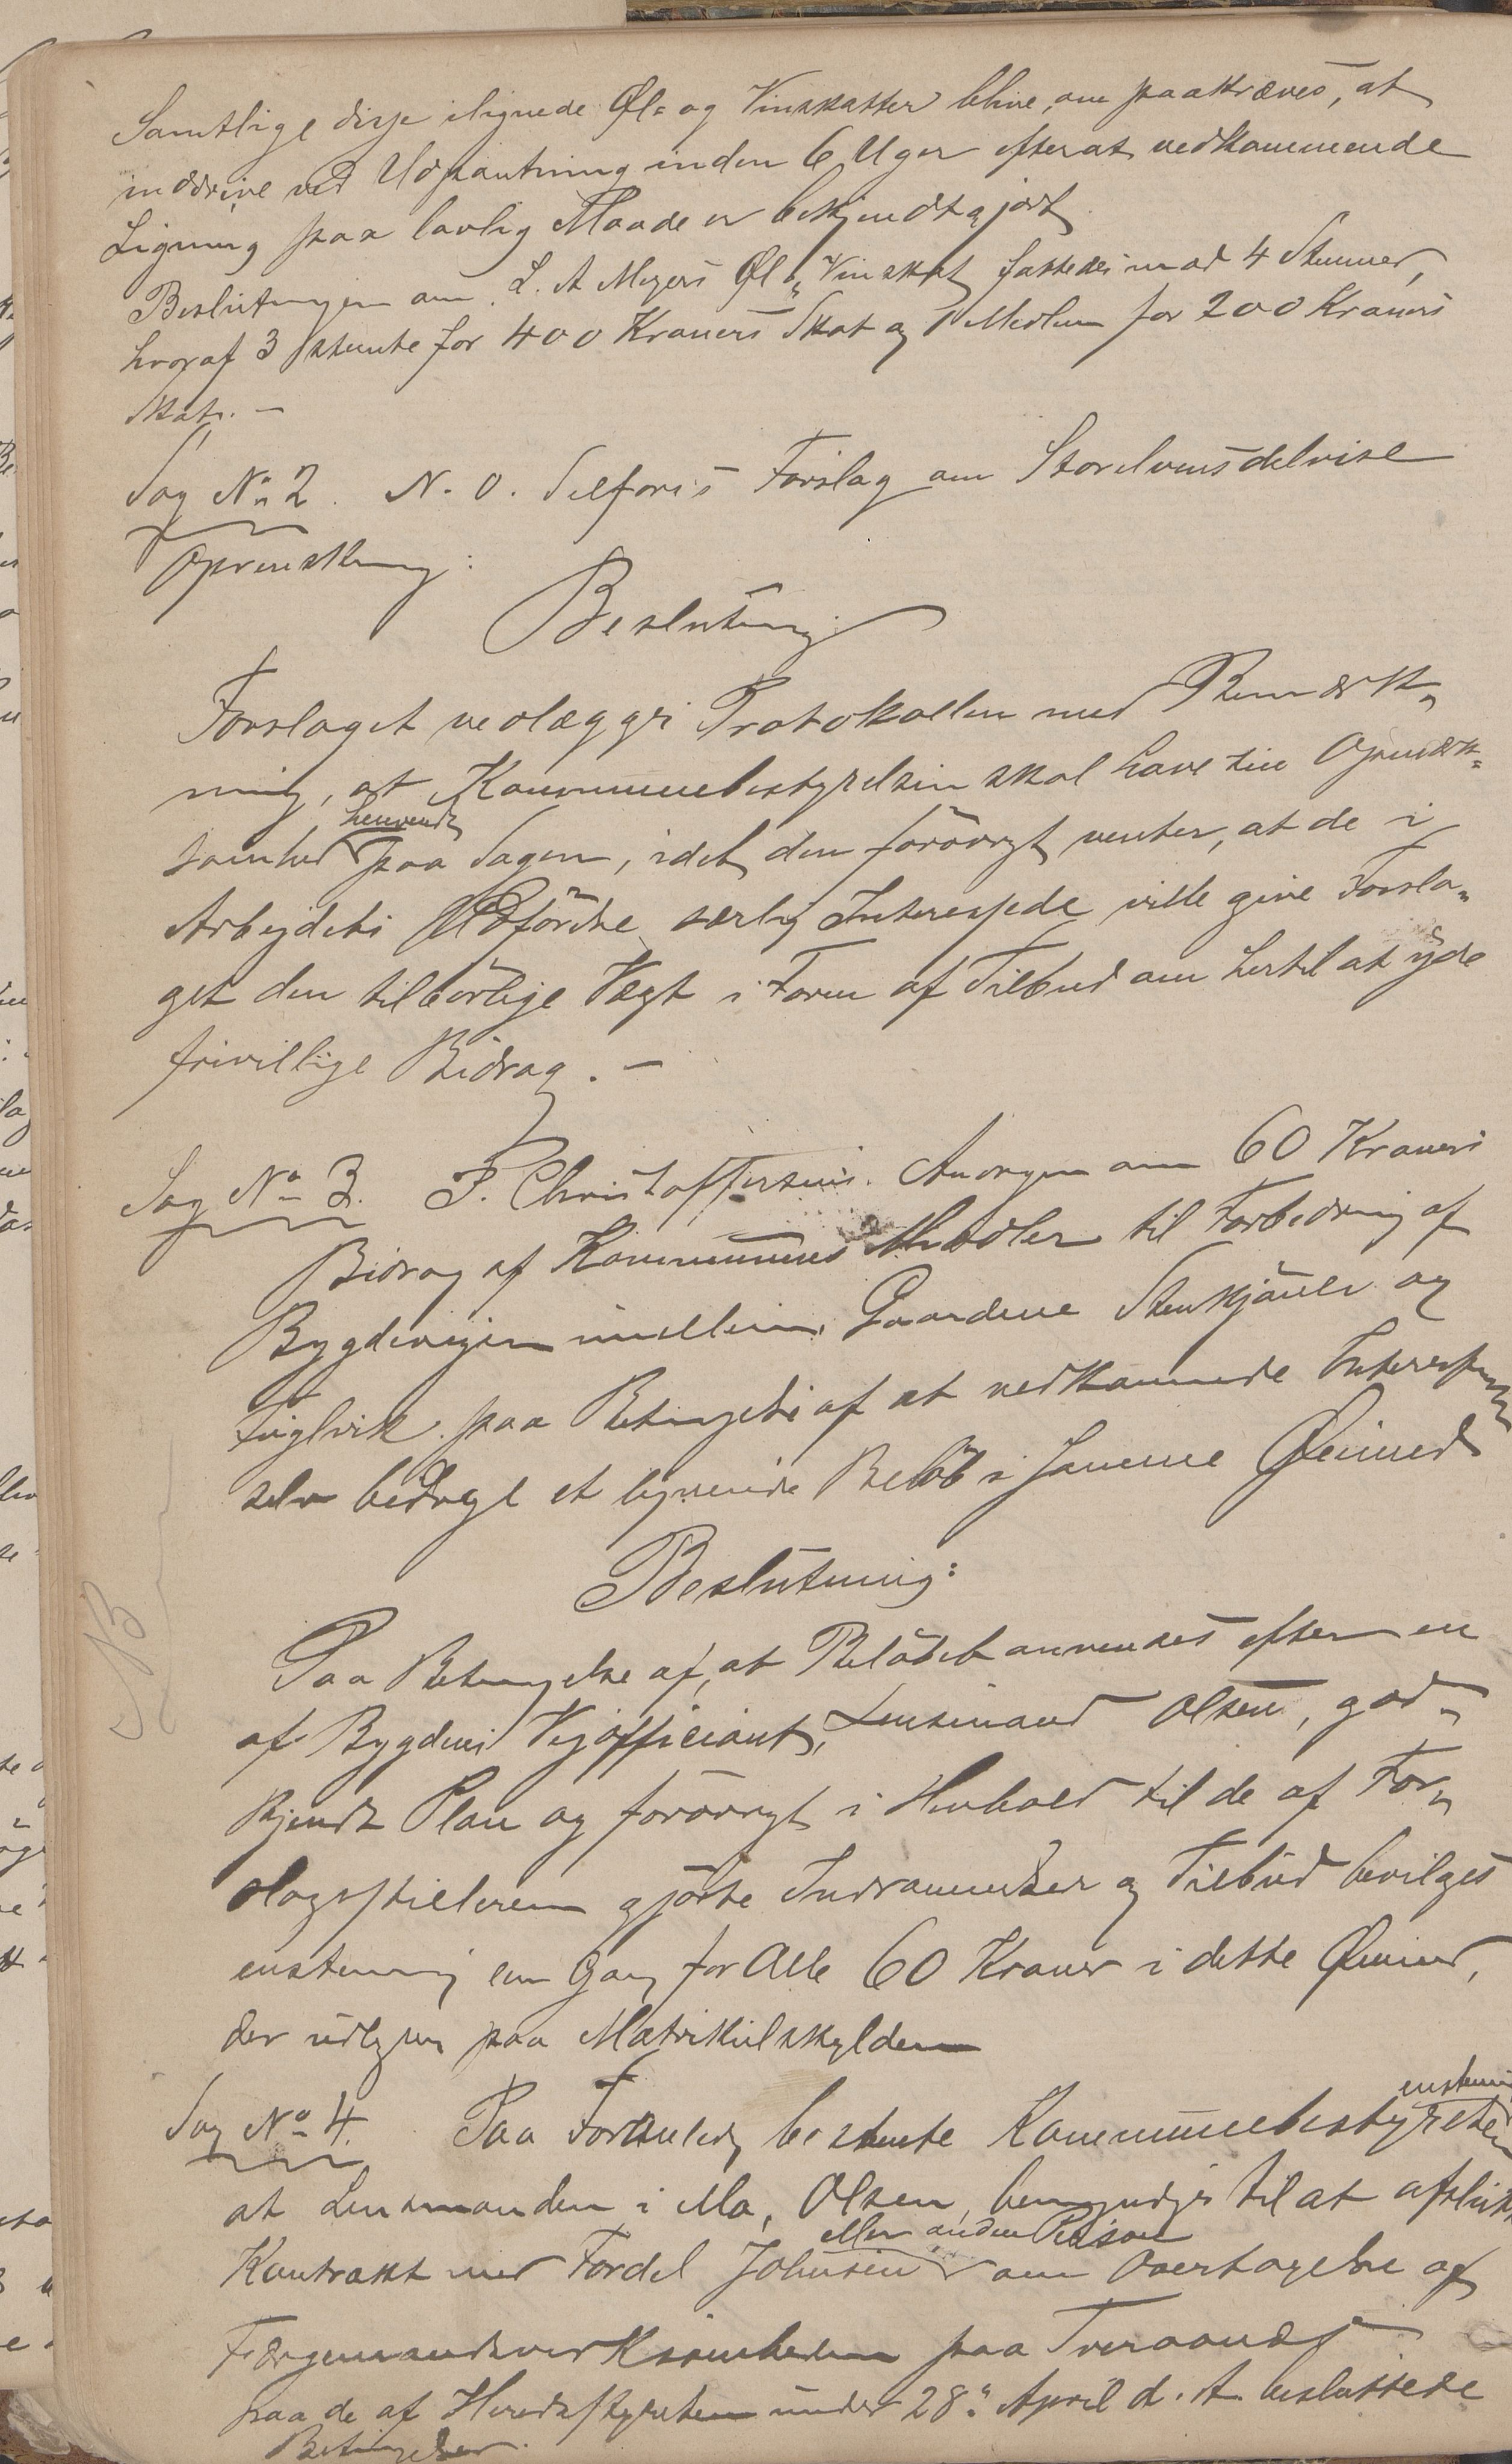 Samtlige disse ilignede Øl- og Vinskatter blive, om paakræves, at
inddrive ved Udpantning inden 6 Uger efterat vedkommende
Ligning paa lovlig Maade er bekjendtgjort
Beslutningen om L. A Meyers Øl & Vinskat fattedes mod 4 Stemmer,
hvoraf 3 stemte for 400 Kroners Skat og 1 Medlem for 200 Kroners
Skat. –
Sag No 2. N. O. Selfors Forslag om Storelvens delvise
Oprenskning:
Beslutning
Forslaget vedlægges Protokollen med Bemærk-
ning, at Kommunebestyrelsen skal have sin Opmærk-
somhed henvendt paa Sagen, idet den forøvrigt venter, at de i
Arbeidets Udførelse særlig Interessede ville give Forsla-
get den tilbørlige Vægt i Form af Tilbud om hertil at yde
frivillige Bidrag. –
Sag No 3. P. Christoffersens Andragen om 60 Kroners
Bidrag af Kommunens Midler til Forbedring af
Bygdeveien imellem Gaardene Stenkjønli og
Fuglvik paa Betingelse af at vedkommende Interessenter
selv bidrage et lignende Beløb i samme Øiemed
Beslutning:
NB
Paa Betingelse af, at Beløbet anvendes efter en
af Bygdens Veiofficiant, Lensmand Olsen, god-
kjendt Plan og forøvrigt i Henhold til de af For-
slagsstilleren gjorte Indrømmelser og Tilbud bevilges
enstemmig en Gang for Alle 60 Kroner i dette Øiemed,
der udlignes paa Matrikulskylden
Sag No 4. Paa Foranledn bestemte Kommunebestyrelsen enstemmig
at Lensmanden i Mo, Olsen, bemyndiges til at afslutte
Kontrakt med Fordel Johnsen eller anden Person om Overtagelse af
Færgemandsvirksomheden paa Tveraanes
paa de af Heredsstyrelsen under 28de April d. A. besluttede
Betingelser.